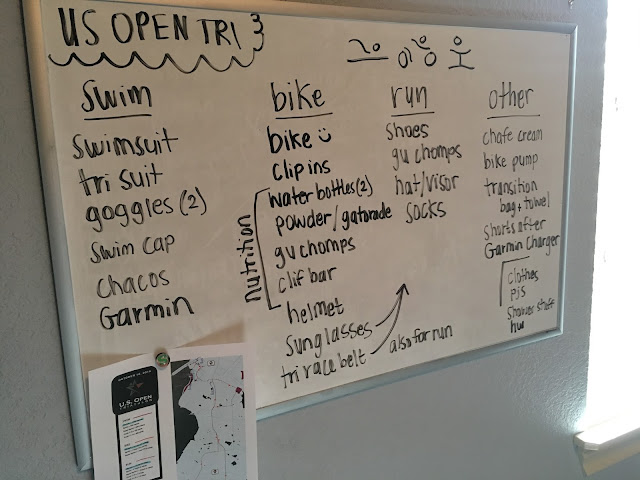 US OPEN TRI
swim
swimsuit
tri suit
goggles (2)
swim cap
chacos
Garmin
bike
bike
clip ins
nutrition
water bottles (2)
powder/gatorade
gu chomps
clif bar
helmet
sunglasses
tri race belt
also for run
run
shoes
gu chomps
hat/visor
socks
other
chafe cream
bike pump
transition
bag + towel
shorts after
Garmin Charger
clothes
pjs
shower stuff
U.S. OPEN